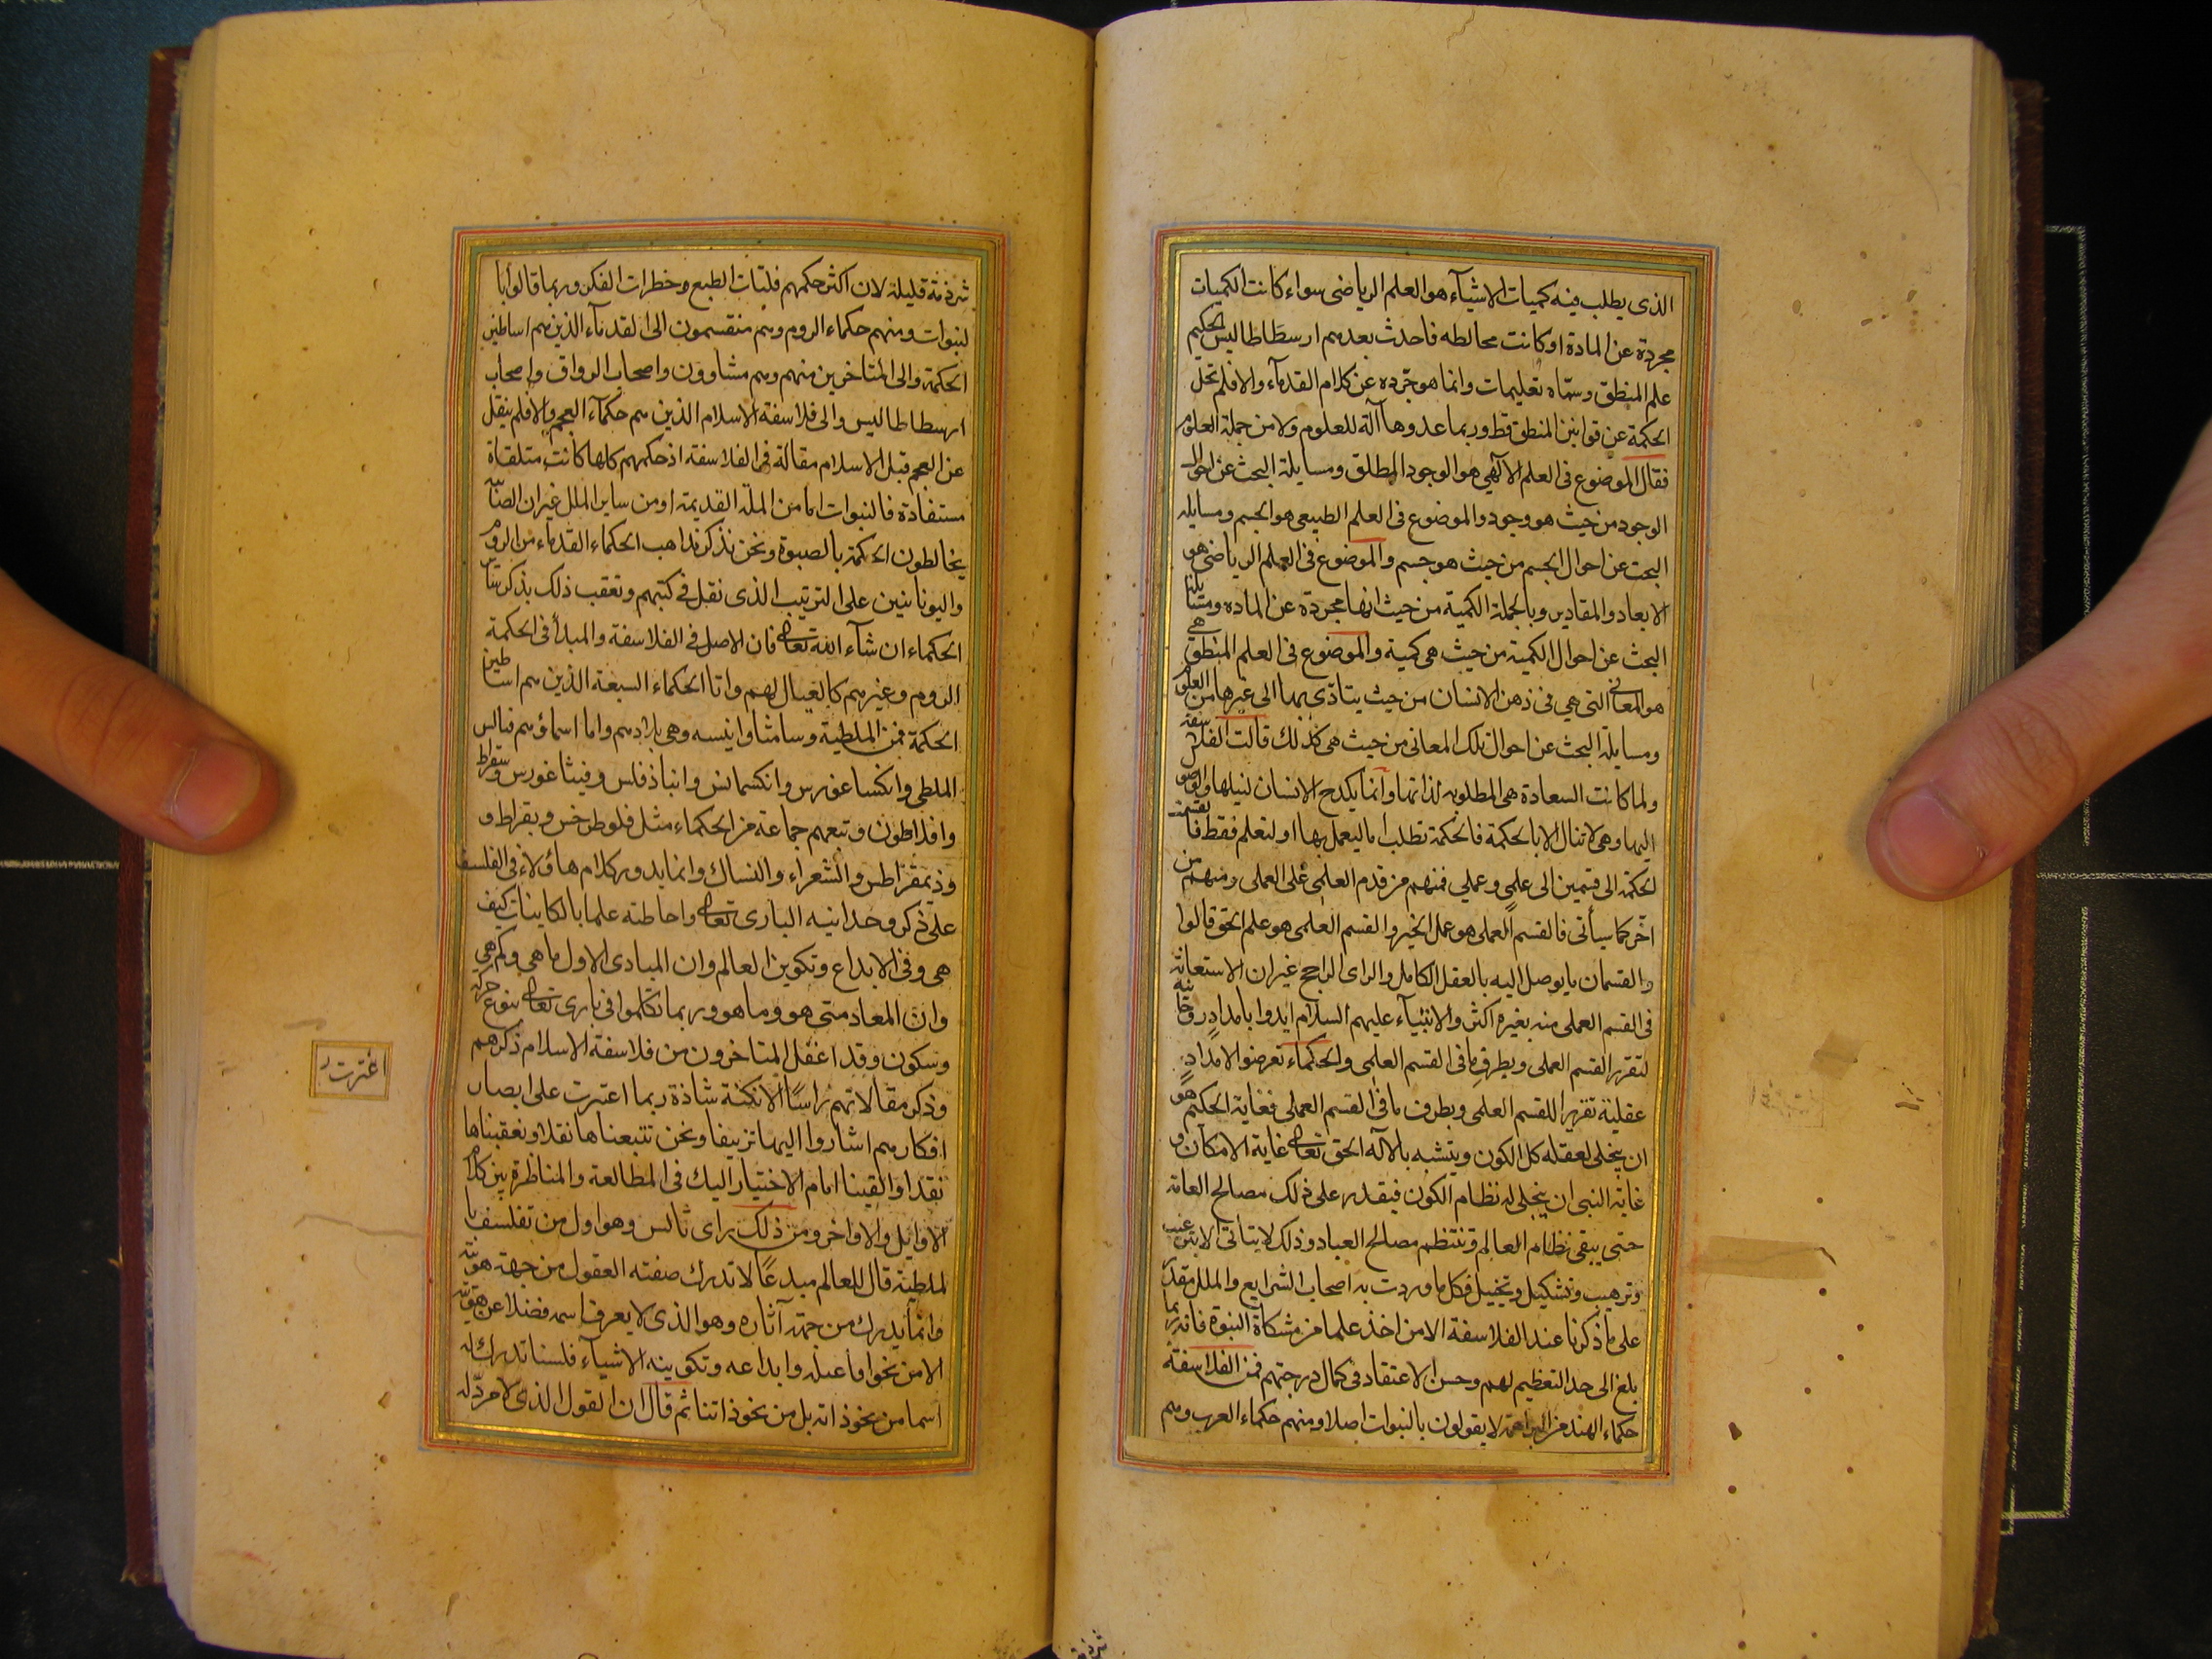 الذى يطلب فيه كميات الاشيآء هو العلم الرياضى سواء كانت الكميات
مجردة عن المادة او كانت مخالطه فاحدث بعدهم ارسطاطاليس الحكيم
علم المنطق وسمّاه تعليمات وانما هو جّرده عن كلام القدمآء والا فلم تخل
الحكمة عن قوانين المنطق قط وربما عدوها آلة للعلوم ولا من جملة العلوم
فقال الموضوع فى العلم الآلهي هو الوجود المطلق ومسايله البحث عن احوال
الوجود من حيث هو وجود والموضوع فى العلم الطبيعى هو الجسم ومسايله
البحث عن احوال الجسم من حيث هو جسم والموضوع فى العلم الرياضى هو
الابعاد والمقادير وبالجملة الكمية من حيث انها مجردة عن الماده ومسايله
البحث عن احوال الكمية من حيث هى كمية والموضوع فى العلم المنطقى
هو المعانى التى هي فى ذهن الانسان من حيث يتادّى بها الى غيرها من العلوم
ومسايله البحث عن احوال تلك المعانى من حيث هى كذلك قالت الفلاسفة
ولما كانت السعادة هى المطلوبه لذاتها وانما يكدح الانسان لنيلها والوصول
اليها وهى لا تنال الا بالحكمة فالحكمة تطلب اما ليعمل بها او لتعلم فقط فانقسمت
الحكمة الى قسمين الى علمي وعملي فمنهم من قدم العلمى على العملى ومنهم من
اخّر كما سيأتى فالقسم العملى هو عمل الخير والقسم العلمى هو علم الحق قالوا
والقسمان مايوصل اليه بالعقل الكامل والراى الراجح غير ان الاستعانة
فى القسم العملى منه بغيره اكثر والانبيآء عليهم السلام ايدوا بامداد روحانية
لتقرير القسم العملى وبطرف ما فى القسم العلمى والحكماء تعرضوا لامداد
عقلية تقريرا للقسم العلمى وبطرف ما فى القسم العملى فغاية الحكيم هو
ان يتجلى لعقله كل الكون ويتشبه بالآله الحق تعالى غاية الامكان و
غاية النبى ان يتجلى له نظام الكون فيقدر على ذلك مصالح العامة
حتى يبقى نظام العالم وتنتظم مصالح العباد وذلك لا يتاتى الا بترغيب
وترهيب وتشكيل وتخييل فكل ما وردت به اصحاب الشرايع والملل مقدر
على ما ذكرنا عند الفلاسفة الا من اخذ علما من مشكاة النبوة فانه ربما
بلغ الى حد التعظيم لهم وحسن الاعتقاد فى كمال درجتهم فمن الفلاسفة
حكماء الهند من البراهمة لا يقولون بالنبوات اصلا ومنهم حكماء العرب وهم
شرذمة
شرذمة قليلة لان اكثر حكمهم فلتات الطبع وخطرات الفكر وربما قالوا با
لنبوات ومنهم حكماء الروم وهم منقسمون الى القدمآء الذين هم اساطين
الحكمة والى المتاخرين منهم وهم مشاوون واصحاب الرواق واصحاب
ارسطاطاليس والى فلاسفة الاسلام الذين هم حكمآء العجم والا فلم ينقل
عن العجم قبل الاسلام مقالة فى الفلاسفة اذ حكمهم كلها كانت متلقاة
مستفادة فالنبوات اما من الملة القديمة او من ساير الملل غير ان الصابّة
يخالطون الحكمة بالصبوة ونحن نذكر مذاهب الحكماء القدماء من الروم
واليونانيين على الترتيب الذى نقل فى كتبهم ونعقب ذلك بذكر ساير
الحكماء ان شآء الله تعالى فان الاصل فى الفلاسفة والمبدأ فى الحكمة
الروم وغيرهم كالعيال لهم واما الحكماء السبعة الذين هم اساطين
الحكمة فمن الملطية وساميا واثينسه وهى بلادهم واما اسماؤهم فثالس
الملطى وانكساغورس وانكسمانس وانباذقلس وفيثاغورس وسقراط
وافلاطون وتبعهم جماعة من الحكماء مثل فلوطرخس وبقراط و
وذيمقراطس والشعراء والنساك وانما يدور كلام هاؤلاء فى الفلسفة
على ذكر وحدانيه البارى تعالى واحاطته علما بالكاينات كيف
هى وفى الابداع وتكوين العالم وان المبادى الاول ما هى وكم هى
وان المعاد متى هو وما هو وربما تكلموا فى بارى تعالى بنوع حركة
وسكون وقد اغفل المتاخرون من فلاسفة الاسلام ذكرهم
وذكر مقالاتهم راسًا الا نكتة شاذة ربما اعترت على ابصار
افكارهم اشاروا اليها تزييفا ونحن تتبعناها نقلا وتعقبناها
نقدا والقينا امام الاختيار اليك فى المطالعة والمناظرة بين كلام
الاوايل والاواخر ومن ذلك راى ثالس وهو اول من تفلسف با
لملطية قال للعالم مبدعًا لا تدرك صفته العقول من جهة هويته
وانما يدرك من جهة آثاره وهو الذى لا يعرف اسمه فضلا عن هويته
الا من نحو افاعيله وابداعه وتكوينه الاشيآء فلسنا ندرك له
اسما من نحو ذاته بل من نحو ذاتنا ثم قال ان القول الذى لا مردّ له
اعترت